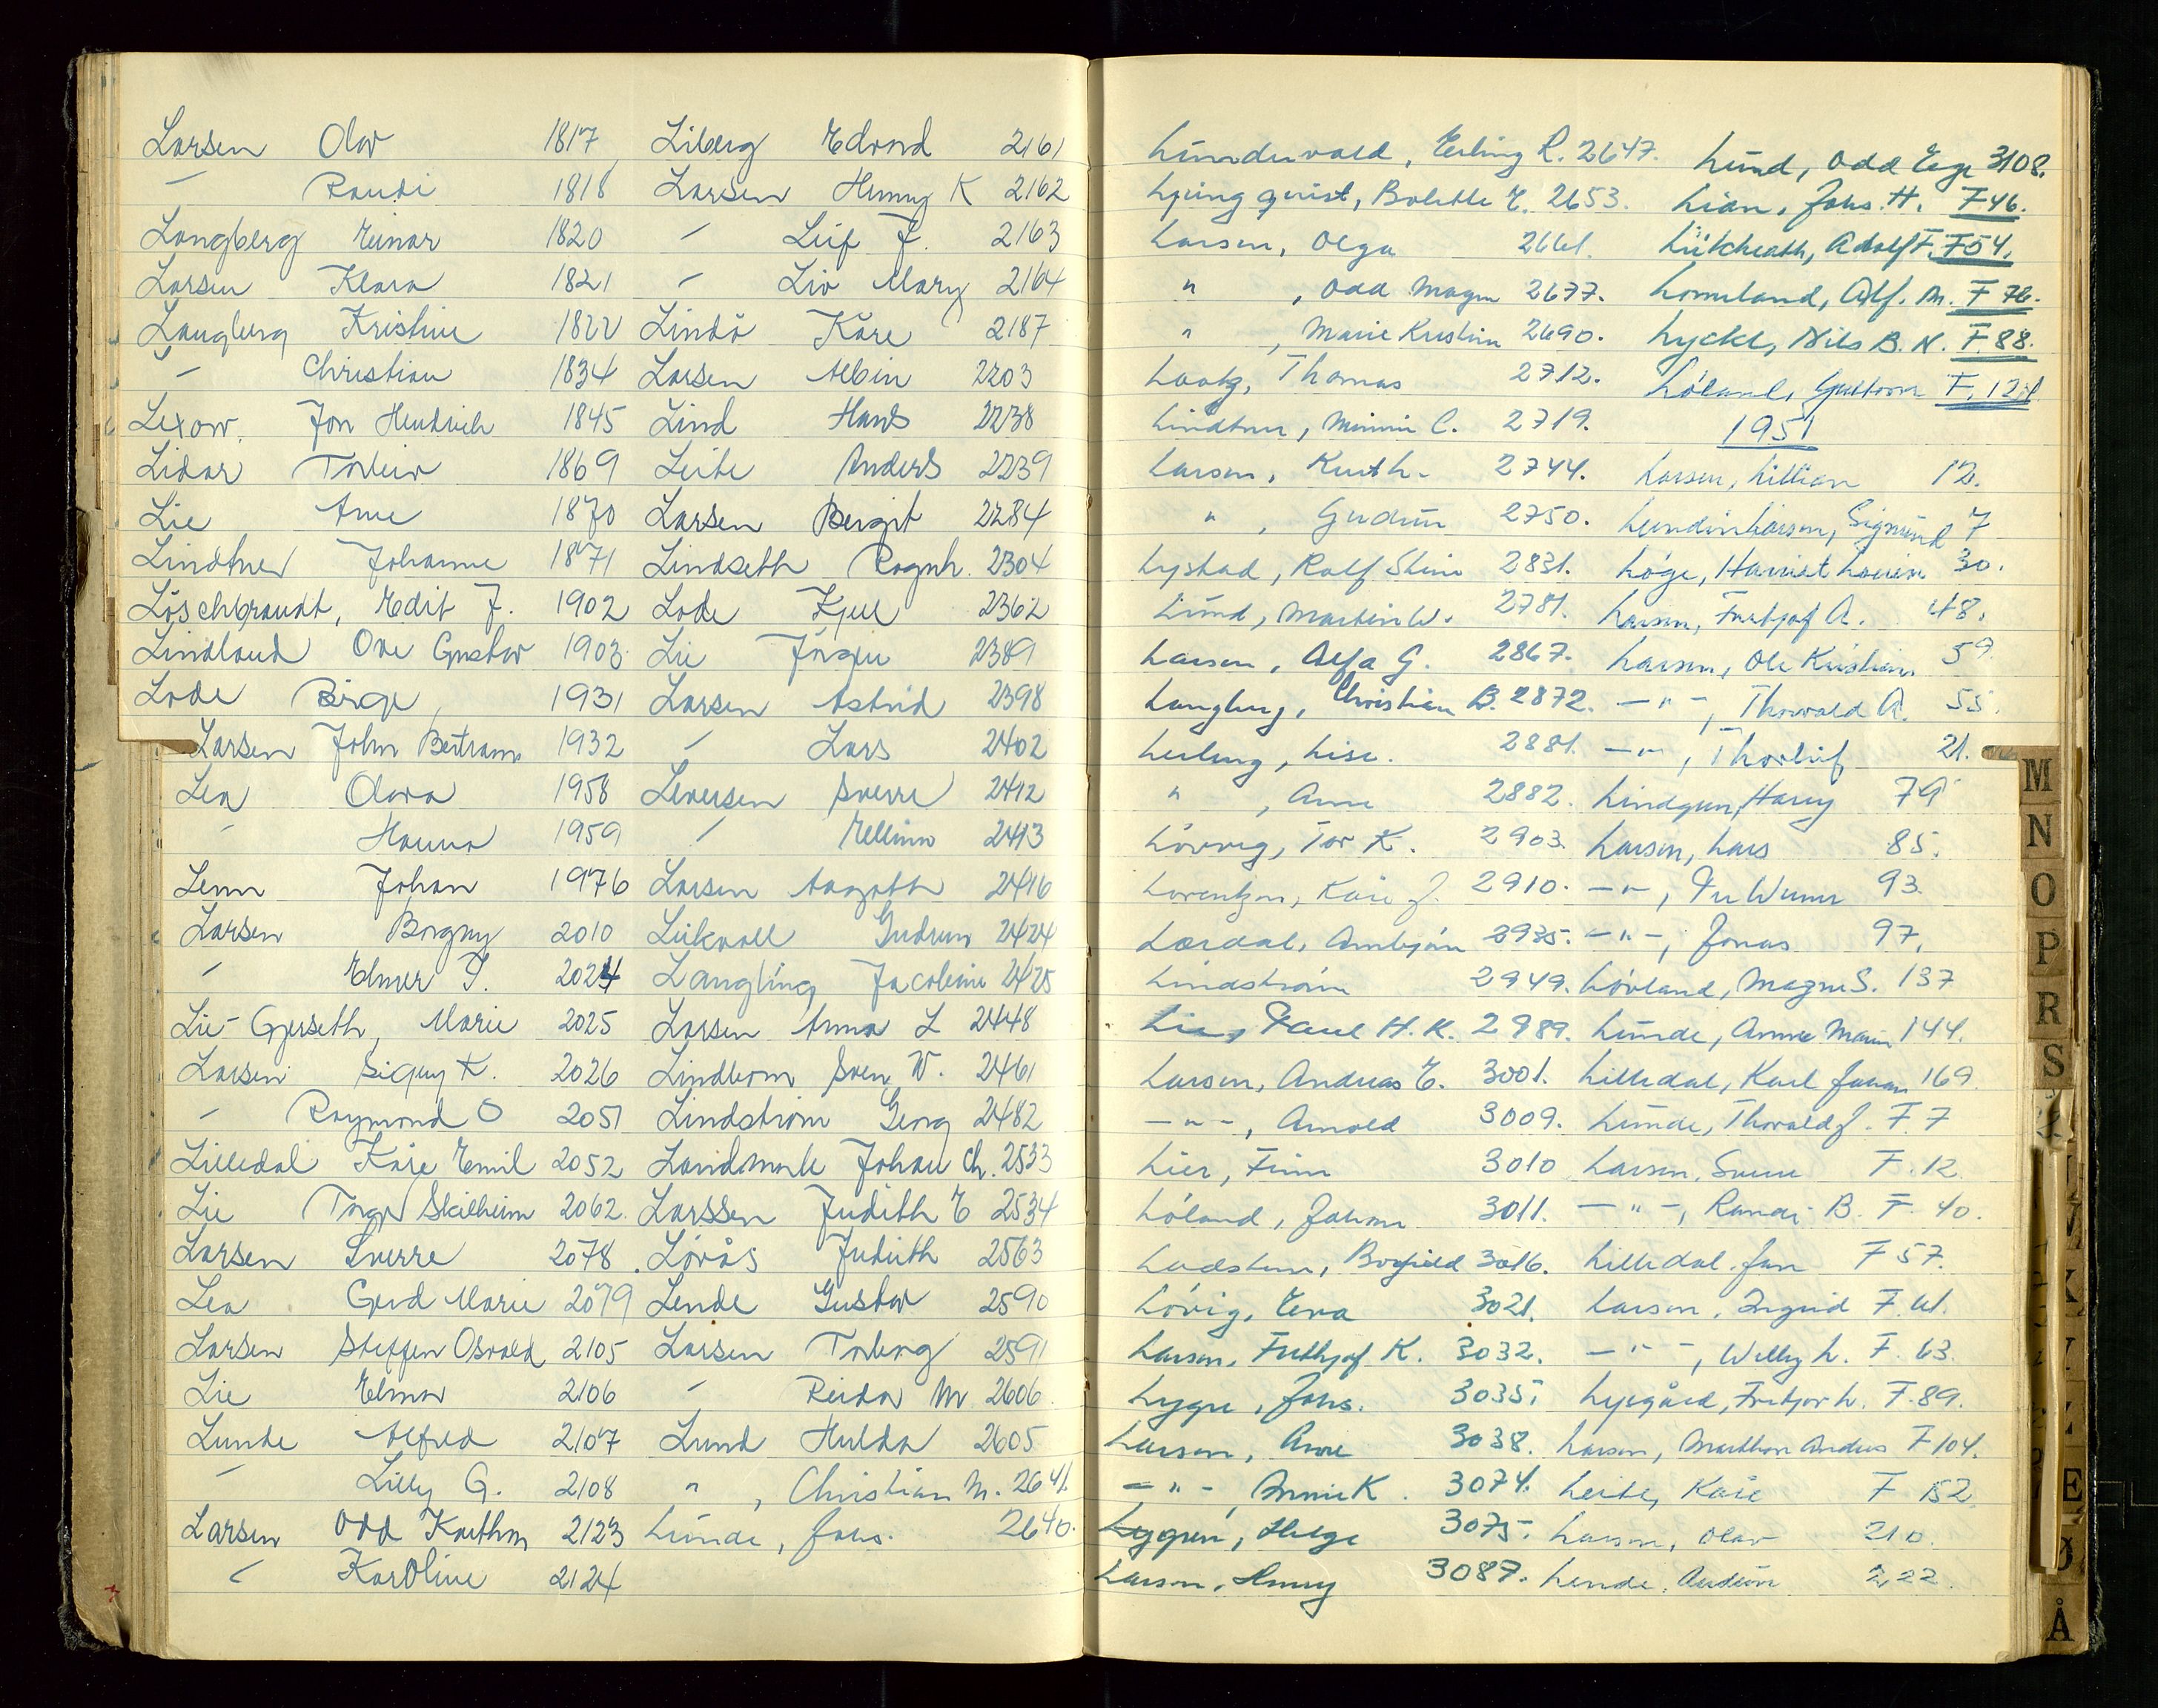 Larsen Olav 1817 Liberg Edvard 2161
— Randi 1818 Larsen Henny K 2162
Langberg Einar 1820 — Leif F. 2163
Larsen Klara 1821 — Liv Mary 2164
Langberg Kristine 1822 Lindö Kåre 2187
— Christian 1834 Larsen Albin 2203
Lexow. Jon Hendrich 1845 Lind Hans 2238
Lidar Torleiv 1869 Leite Anders 2239
Lie Arne 1870 Larsen Bergit 2284
Lindtner Johanne 1871 Lindseth Ragnh. 2304
Löschbrandt, Edit F. 1902 Lode Kjell 2362
Lindland Ove Gustav 1903 Lie Jörgen 2389
Lode Birger 1931 Larsen Astrid 2398
Larsen John Bertram 1932 — Lars 2402
Lea Olava 1958 Leversen Sverre 2412
— Hanna 1959 — Ellinor 2413
Lenn Johan 1976 Larsen Aagoth 2416
Larsen Borgny 2010 Leikvoll Gudrun 2424
— Elmer T. 2024 Langling Jacobine 2425
Lie-Gjerseth, Marie 2025 Larsen Anna L 2448
Larsen Signy K. 2026 Lindbom Sven W. 2461
— Raymond O 2051 Lindström Georg 2482
Lilledal Kåre Emil 2052 Landmark Johan Ch. 2533
Lie Torger Skilheim 2062 Larssen Judith E 2534
Larsen Sverre 2078 Lövås Judith 2563
Lea Gerd Marie 2079 Lende Gustav 2590
Larsen Steffen Osvald 2105 Larsen Torborg 2591
Lie Elmar 2106 — Reidar M 2606
Lunde Alfred 2107 Lund Hulda 2605
— Lilly G. 2108 " , Christian M. 2641.
Larsen Odd Kauthon 2123 Lunde, Johs. 2640.
— Karoline 2124
Lundervold, Erling R. 2647. Lund, Odd Eege 3108.
Ljungquist, Bolette E. 2653. Lian, Johs. H. F 46.
Larsen, Olga 2661. Lütcherath, Adolf F. F 54.
" , Odd Magne 2677. Lomeland, Alf. M. F 76.
" , Marie Kristine 2690. Lycke, Nils B. N. F. 88.
Laatz, Thomas 2712. Löland, Guttorm F. 121
Lindtner, Minnie C. 2719. 1951
Larsen, Kurt L. 2744. Larsen, Lillian 12.
" , Gudrun 2750. Lundin Larsen, Sigmund 7
Lystad, Rolf Stein 2831. Löge, Harriet Louise 30.
Lund, Martin W. 2781. Larsen, Fritjof A. 48.
Larsen, Alfa G. 2867. Larsen, Ole Kristian. 59.
Langberg, Christian B. 2872. —"—, Thorvald A. 55.
Leiberg, Lise. 2881. —"—, Thorleif 21.
" , Anne 2882. Lindgren, Harry 79
Lövvig, Tor K. 2903. Larsen, Lars 85.
Lorentzen, Kåre J. 2910. —"—, Per Werner 93.
Lærdal, Arnbjörn 2935. —"—, Jonas 97.
Lindström 2949. Lövland, Magne S. 137
Lie, Paul H. K. 2989. Lunde, Anne Marie 144.
Larsen, Andreas E. 3001. Lilledal, Karl Johan 169
—"—, Arnold 3009. Lunde, Thorvald J. F. 7
Lier, Finn 3010 Larsen, Svenn F. 12
Löland, Johan 3011. —"—, Randi B. F. 40.
Ladstein, Borghild 3016. Lilledal, Jan F 57.
Lövig, Eva 3021. Larsen, Ingrid F. 61.
Larsen, Frithjof K. 3032. —"—, Willy L. F. 63.
Lygre, Johs. 3035. Lysgård, Fritjov L. F. 89.
Larsen, Arne 3038. Larsen, Marthon Andreas F 104.
—"—, Annie K. 3074. Leite, Kåre F 152
Lygren, Helge 3075. Larsen, Olav 210.
Larsen, Henny 3087. Lende, Audun 222.
M
N
O
P
R
S
E
Ø
Å